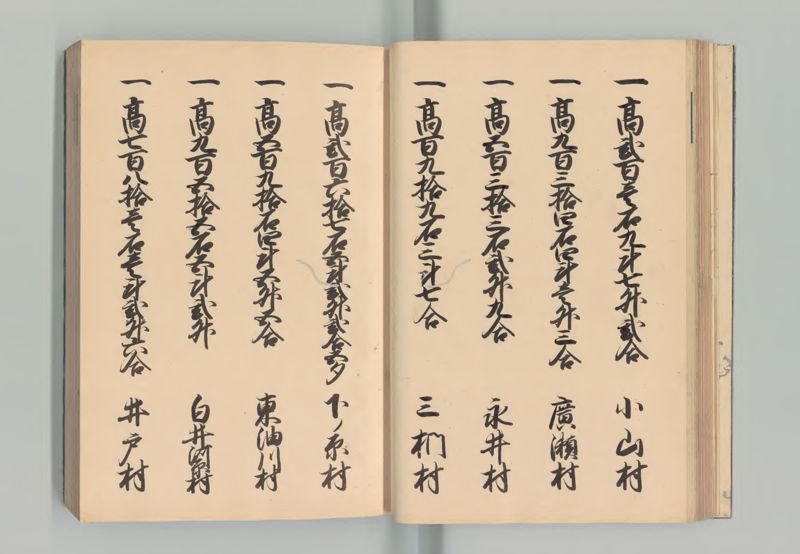 一高弐百壱石九斗七升弐合 小山村
一高九百三拾四石四斗壱升三合 廣瀬村
一高六百三拾三石弐升九合 永井村
一高百九拾九石三斗七合 三椚村
一高弐百六拾七石六斗弐升弐合六夕 下ノ原村
一高五百九拾石四斗五升五合 東油川村
一高九百六拾五石六斗弐升 白井河原村
一高七百八拾壱石壱斗弐升六合 井戸村